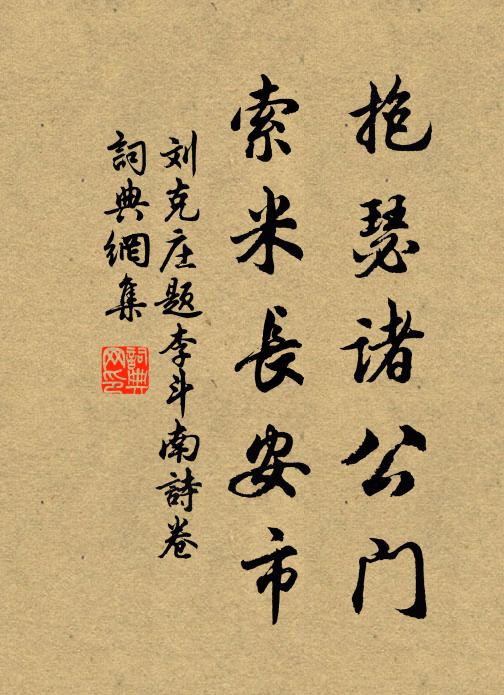 抱瑟诸公门
索米長安市
刘克庄题李斗南詩卷
詞典網集
詞典网印